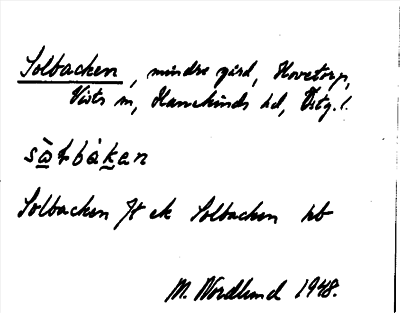 Solbacken, mindre gård, Hovetorp,
Vists sn, Hanekinds hd, Östg. l.
sὼɫbàkan
Solbacken Jr ek Solbacken hb
M. Nordlund 1948.